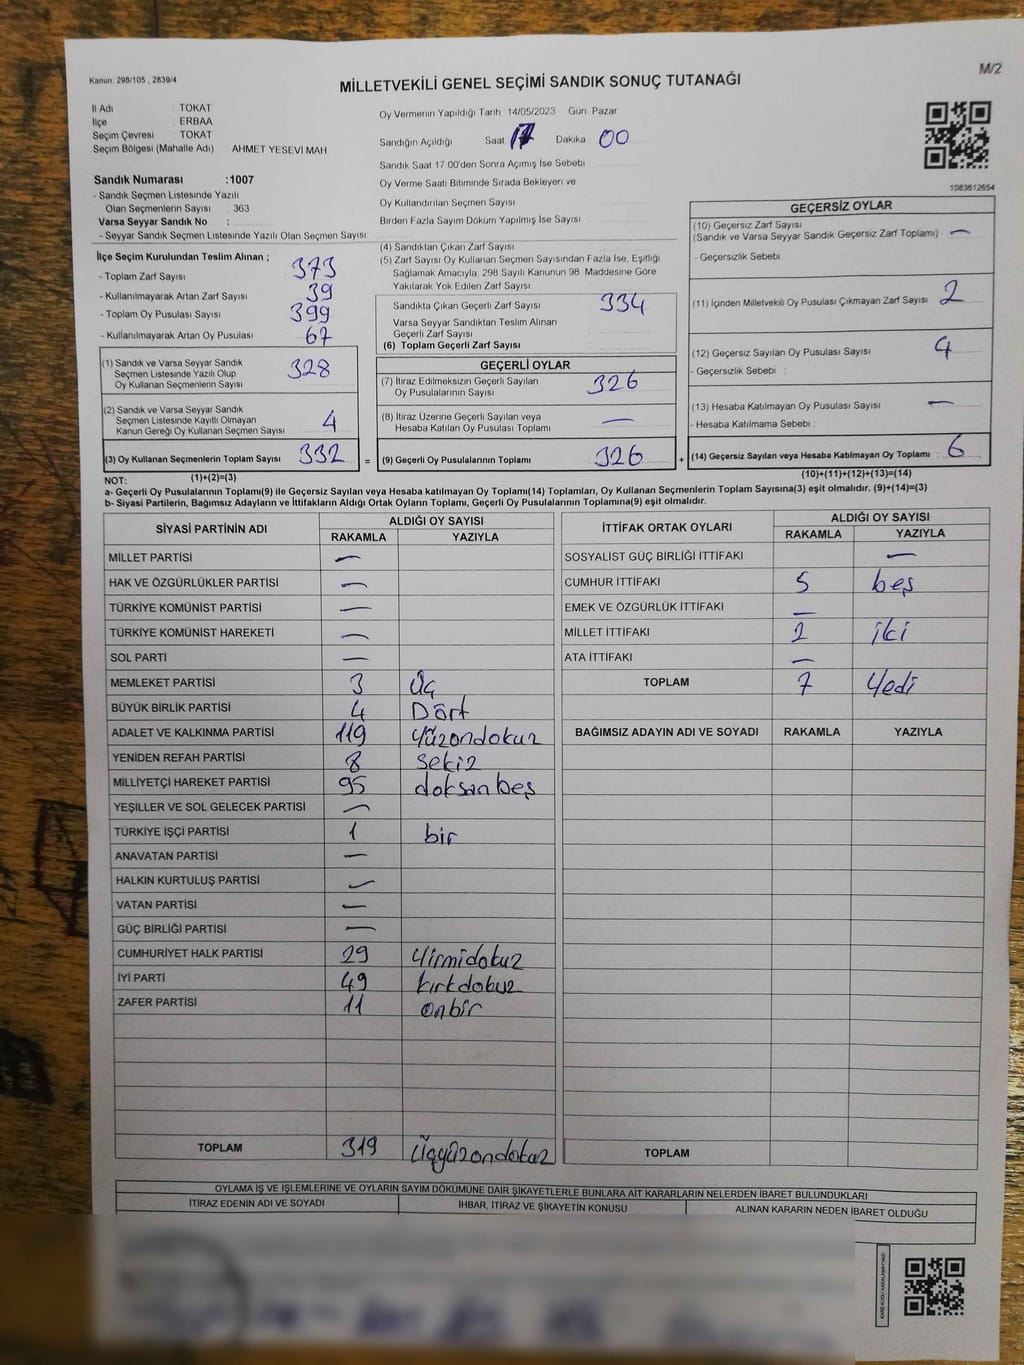 M/2
Kanun: 298/105 , 2839/4
MİLLETVEKİLİ GENEL SEÇİMİ SANDIK SONUÇ TUTANAĞI
İl Adı : TOKAT
İlçe : ERBAA
Seçim Çevresi : TOKAT
Seçim Bölgesi (Mahalle Adı) : AHMET YESEVİ MAH.
Sandık Numarası :1007
- Sandık Seçmen Listesinde Yazılı
Olan Seçmenlerin Sayısı : 363
Varsa Seyyar Sandık No :
- Seyyar Sandık Seçmen Listesinde Yazılı Olan Seçmen Sayısı:
Oy Vermenin Yapıldığı Tarih 14/05/2023 Gün Pazar
Sandığın Açıldığı Saat 17 Dakika 00
Sandık Saat 17:00'den Sonra Açımış İse Sebebi
Oy Verme Saati Bitiminde Sırada Bekleyen ve
Oy Kullandırılan Seçmen Sayısı
Birden Fazla Sayım Döküm Yapılmış İse Sayısı
1083612654
İlçe Seçim Kurulundan Teslim Alınan ;
- Toplam Zarf Sayısı 373
- Kullanılmayarak Artan Zarf Sayısı 39
- Toplam Oy Pusulası Sayısı 399
- Kullanılmayarak Artan Oy Pusulası 67
(1) Sandık ve Varsa Seyyar Sandık
Seçmen Listesinde Yazılı Olup
Oy Kullanan Seçmenlerin Sayısı 328
(2) Sandık ve Varsa Seyyar Sandık
Seçmen Listesinde Kayıtlı Olmayan
Kanun Gereği Oy Kullanan Seçmen Sayısı 4
(3) Oy Kullanan Seçmenlerin Toplam Sayısı 332 =
(4) Sandıktan Çıkan Zarf Sayısı
(5) Zarf Sayısı Oy Kullanan Seçmen Sayısından Fazla İse, Eşitliği
Sağlamak Amacıyla, 298 Sayılı Kanunun 98. Maddesine Göre
Yakılarak Yok Edilen Zarf Sayısı
Sandıkta Çıkan Geçerli Zarf Sayısı 334
Varsa Seyyar Sandıktan Teslim Alınan
Geçerli Zarf Sayısı
(6) Toplam Geçerli Zarf Sayısı
GEÇERLİ OYLAR
(7) İtiraz Edilmeksizin Geçerli Sayılan
Oy Pusulalarının Sayısı 326
(8) İtiraz Üzerine Geçerli Sayılan veya
Hesaba Katılan Oy Pusulası Toplamı —
(9) Geçerli Oy Pusulalarının Toplamı 326 +
GEÇERSİZ OYLAR
(10) Geçersiz Zarf Sayısı
(Sandık ve Varsa Seyyar Sandık Geçersiz Zarf Toplamı) —
- Geçersizlik Sebebi
(11) İçinden Milletvekili Oy Pusulası Çıkmayan Zarf Sayısı 2
(12) Geçersiz Sayılan Oy Pusulası Sayısı 4
- Geçersizlik Sebebi :
(13) Hesaba Katılmayan Oy Pusulası Sayısı —
- Hesaba Katılmama Sebebi :
(14) Geçersiz Sayılan veya Hesaba Katılmayan Oy Toplamı : 6
NOT: (1)+(2)=(3) (10)+(11)+(12)+(13)=(14)
a- Geçerli Oy Pusulalarının Toplamı(9) ile Geçersiz Sayılan veya Hesaba katılmayan Oy Toplamı(14) Toplamları, Oy Kullanan Seçmenlerin Toplam Sayısına(3) eşit olmalıdır. (9)+(14)=(3)
b- Siyasi Partilerin, Bağımsız Adayların ve İttifakların Aldığı Ortak Oyların Toplamı, Geçerli Oy Pusulalarının Toplamına(9) eşit olmalıdır.
SİYASİ PARTİNİN ADI ALDIĞI OY SAYISI
RAKAMLA YAZIYLA
MİLLET PARTİSİ —
HAK VE ÖZGÜRLÜKLER PARTİSİ —
TÜRKİYE KOMÜNİST PARTİSİ —
TÜRKİYE KOMÜNİST HAREKETİ —
SOL PARTİ —
MEMLEKET PARTİSİ 3 Üç
BÜYÜK BİRLİK PARTİSİ 4 Dört
ADALET VE KALKINMA PARTİSİ 119 Yüzondokuz
YENİDEN REFAH PARTİSİ 8 Sekiz
MİLLİYETÇİ HAREKET PARTİSİ 95 doksanbeş
YEŞİLLER VE SOL GELECEK PARTİSİ —
TÜRKİYE İŞÇİ PARTİSİ 1 bir
ANAVATAN PARTİSİ —
HALKIN KURTULUŞ PARTİSİ —
VATAN PARTİSİ —
GÜÇ BİRLİĞİ PARTİSİ —
CUMHURİYET HALK PARTİSİ 29 Yirmidokuz
İYİ PARTİ 49 kırkdokuz
ZAFER PARTİSİ 11 onbir
TOPLAM 319 Üçyüzondokuz
İTTİFAK ORTAK OYLARI ALDIĞI OY SAYISI
RAKAMLA YAZIYLA
SOSYALİST GÜÇ BİRLİĞİ İTTİFAKI —
CUMHUR İTTİFAKI 5 beş
EMEK VE ÖZGÜRLÜK İTTİFAKI —
MİLLET İTTİFAKI 2 iki
ATA İTTİFAKI —
TOPLAM 7 Yedi
BAĞIMSIZ ADAYIN ADI VE SOYADI RAKAMLA YAZIYLA
TOPLAM
OYLAMA İŞ VE İŞLEMLERİNE VE OYLARIN SAYIM DÖKÜMÜNE DAİR ŞİKAYETLERLE BUNLARA AİT KARARLARIN NELERDEN İBARET BULUNDUKLARI
İTİRAZ EDENİN ADI VE SOYADI İHBAR, İTİRAZ VE ŞİKAYETİN KONUSU ALINAN KARARIN NEDEN İBARET OLDUĞU